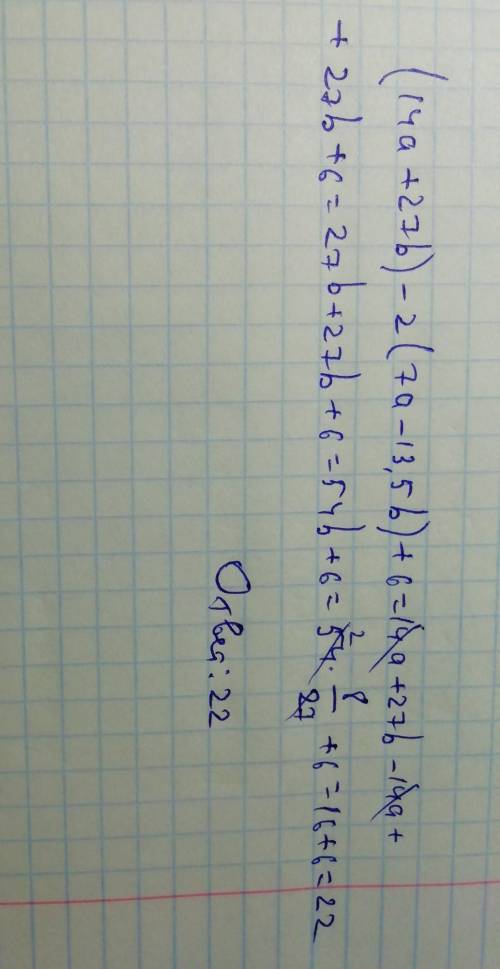 (14a + 27b) - 2(7a - 13,5b) + 6 = 14a + 27b - 14a +
+ 27b + 6 = 27b + 27b + 6 = 54b + 6 = 54 2 · 8/27 + 6 = 16 + 6 = 22
Ответ: 22